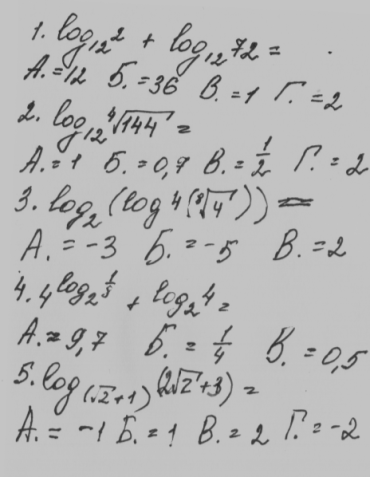 1. log₁₂2 + log₁₂72 =
А. =12 Б. =36 В. =1 Г. =2
2. log₁₂⁴√144 =
А. =1 Б. =0,7 В. =1/2 Г. =2
3. log₂(log4(⁸√4)) =
А. =-3 Б. =-5 В. =2
4. 4^log₂1/3 + log₂4 =
А. =9,7 Б. =1/4 В. =0,5
5. log(√2+1)(2√2+3) =
А. =-1 Б. =1 В. =2 Г. =-2